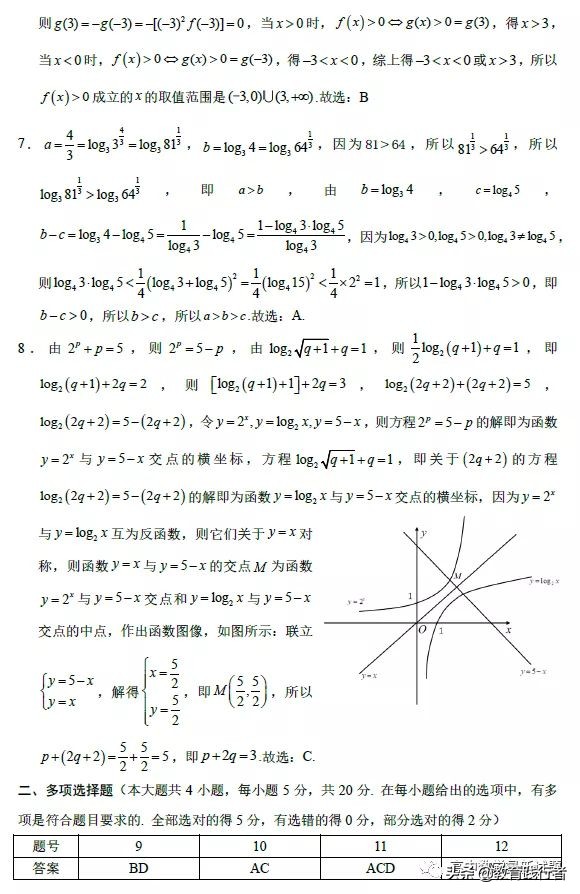 则 g(3)=-g(-3)=-[(-3)²f(-3)]=0，当 x>0 时，f(x)>0⇔g(x)>0=g(3)，得 x>3，
当 x<0 时，f(x)>0⇔g(x)>0=g(-3)，得 -3<x<0，综上得 -3<x<0 或 x>3，所以
f(x)>0 成立的 x 的取值范围是 (-3,0)∪(3,+∞).故选：B
7．a=4/3=log₃3^(4/3)=log₃81^(1/3)，b=log₃4=log₃64^(1/3)，因为 81>64，所以 81^(1/3)>64^(1/3)，所以
log₃81^(1/3)>log₃64^(1/3)，即 a>b，由 b=log₃4，c=log₄5，
b-c=log₃4-log₄5=1/log₄3-log₄5=(1-log₄3·log₄5)/log₄3，因为log₄3>0,log₄5>0,log₄3≠log₄5，
则log₄3·log₄5<1/4(log₄3+log₄5)²=1/4(log₄15)²<1/4×2²=1，所以1-log₄3·log₄5>0，即
b-c>0，所以b>c，所以a>b>c.故选：A.
8．由 2^p+p=5，则 2^p=5-p，由 log₂√(q+1)+q=1，则 1/2log₂(q+1)+q=1，即
log₂(q+1)+2q=2，则 [log₂(q+1)+1]+2q=3，log₂(2q+2)+(2q+2)=5，
log₂(2q+2)=5-(2q+2)，令 y=2^x,y=log₂x,y=5-x，则方程 2^p=5-p 的解即为函数
y=2^x 与 y=5-x 交点的横坐标，方程 log₂√(q+1)+q=1，即关于(2q+2)的方程
log₂(2q+2)=5-(2q+2)的解即为函数 y=log₂x 与 y=5-x 交点的横坐标，因为 y=2^x
与 y=log₂x 互为反函数，则它们关于 y=x 对
称，则函数 y=x 与 y=5-x 的交点 M 为函数
y=2^x 与 y=5-x 交点和 y=log₂x 与 y=5-x
交点的中点，作出函数图像，如图所示：联立
{y=5-x y=x，解得{x=5/2 y=5/2，即 M(5/2,5/2)，所以
p+(2q+2)=5/2+5/2=5，即 p+2q=3.故选：C.
y
M
y=2^x
1
y=log₂x
O
1
x
y=x
y=5-x
二、多项选择题（本大题共 4 小题，每小题 5 分，共 20 分. 在每小题给出的选项中，有多
项是符合题目要求的. 全部选对的得 5 分，有选错的得 0 分，部分选对的得 2 分）
题号 9 10 11 12
答案 BD AC ACD
头条 @教育践行者